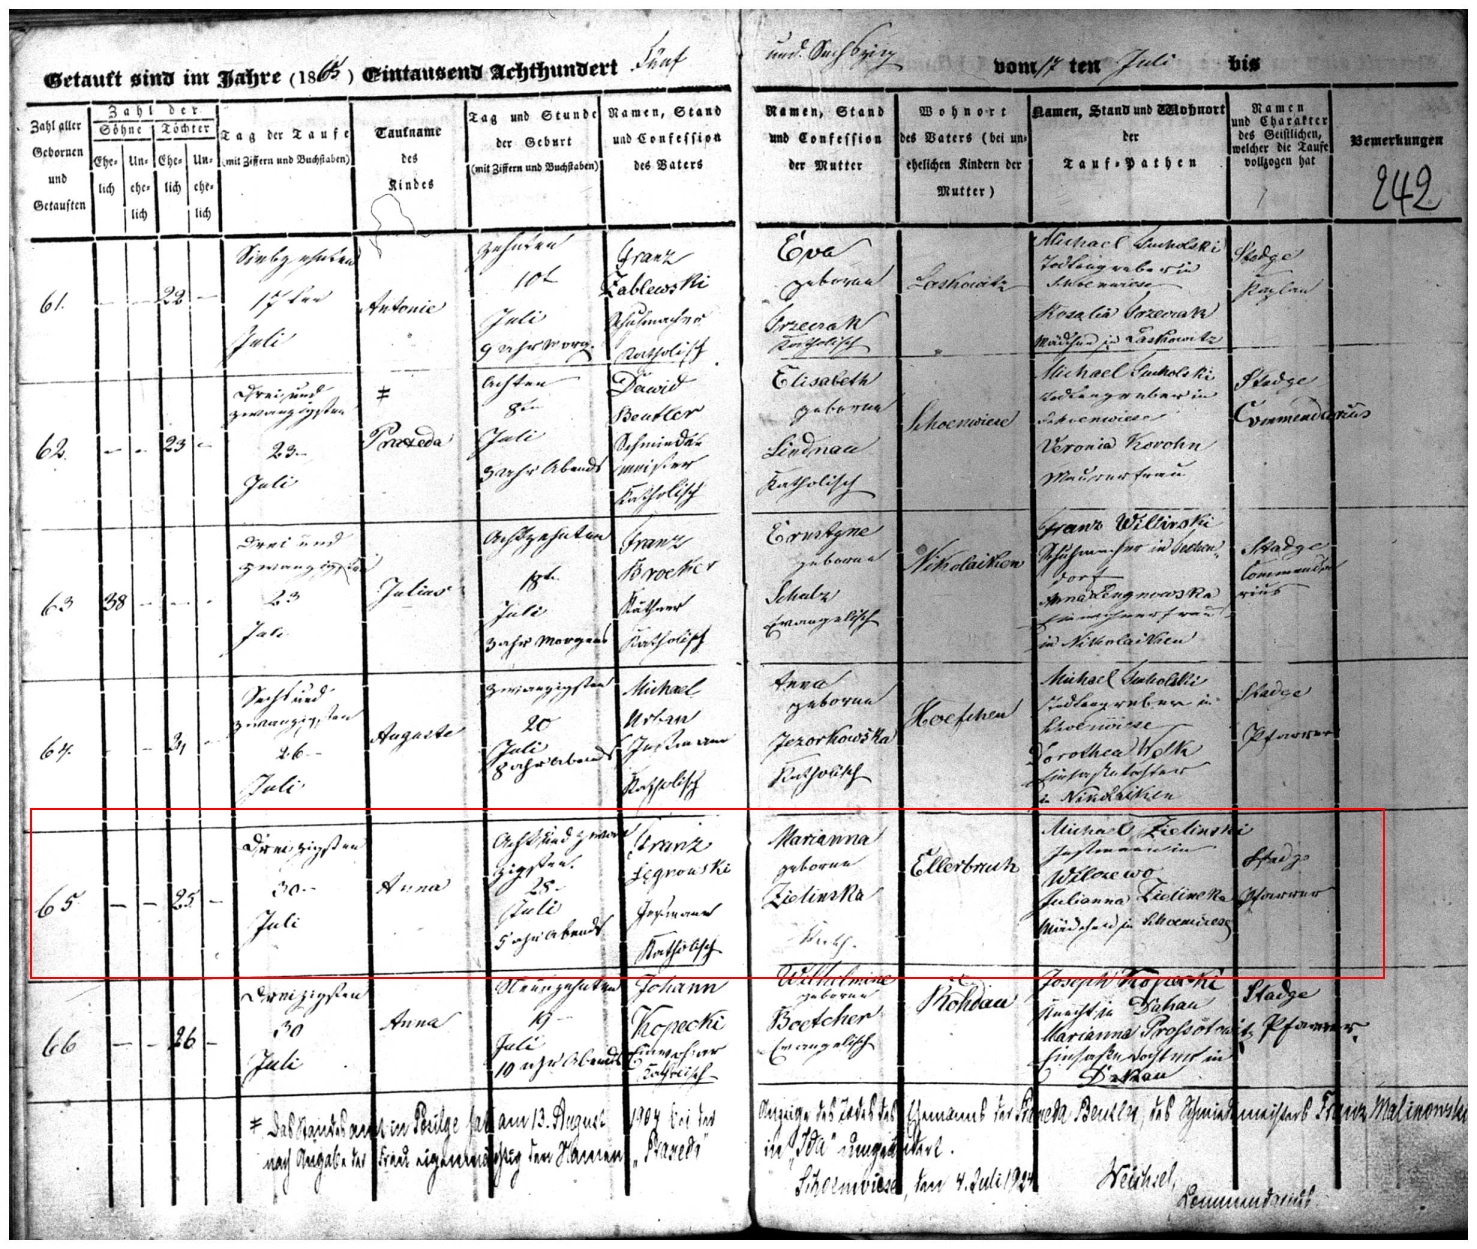 Getauft sind im Jahre (1865) Eintausend Achthundert Fünf und Sechszig vom 17 ten Juli bis
Zahl aller Gebornen und Getauften
Zahl der
Söhne Töchter
Ehelich Unehelich Ehelich Unehelich
Tag der Taufe (mit Ziffern und Buchstaben)
Taufname des Kindes
Tag und Stunde der Geburt (mit Ziffern und Buchstaben)
Namen, Stand und Confession des Vaters
Namen, Stand und Confession der Mutter
Wohnort des Vaters (bei unehelichen Kindern der Mutter)
Namen, Stand und Wohnort der Tauf-Pathen
Namen und Charakter des Geistlichen, welcher die Taufe vollzogen hat
Bemerkungen
242
61. - - 22 -
Siebzehnten
17ten
Juli
Antonie
Zehnten
10t
Juli
9 Uhr Morg.
Franz
Zablewski
Schuhmacher
Katholisch
Eva
geborne
Grzecrak
Katholisch
Laskowitz
Michael Sucholski
Todtengräber in
Schoenwiese
Rosalia Grzecrak
Mädchen in Laskowitz
Stadge
Kaplan
62. - - 23 -
Drei und
zwanzigsten
23
Juli
≠
Praxeda
Achten
8ten
Juli
3 Uhr Abends
Dawid
Beutler
Schmiede
meister
Katholisch
Elisabeth
geborne
Lindnau
Katholisch
Schoenwiese
Michael Sucholski
Todtengräber in
Schoenwiese
Veronia Korohn
Maurerfrau
Stadge
Commendarius
63 38 - - -
Drei und
zwanzigsten
23
Juli
Julius
Achtzehnten
18t.
Juli
3 Uhr Morgens
Franz
Broecker
Käthner
Katholisch
Ernstyne
geborne
Schulz
Evangelisch
Nikolaiken
Franz Willinski
Schuhmacher in
dorf
Anna Lengnowska
Einwohnerfrau
in Nikolaiken
Stadge
Commenda
rius
64. - -
Sechs und
zwanzigsten
26
Juli
Auguste
Zwanzigsten
20
Juli
8 Uhr Abends
Michael
Urban
Instmann
Katholisch
Anna
geborne
Jezorkowska
Katholisch
Hoefchen
Michael Sucholski
Todtengräber in
Schoenwiese
Dorothea Wolk
Einsassetochter
in Nikolaiken
Stadge
Pfarrer
65 - - 25 -
Dreizigsten
30
Juli
Anna
Acht und zwan
zigsten
28
Juli
5 Uhr Abends
Franz
Zegronski
Instmann
Katholisch
Marianna
geborne
Zielinska
Kath.
Ellerbruch
Michael Zielinski
Instmann in
Wilczewo
Julianna Zielinska
Mädchen in Schoenwiese
Stadge
Pfarrer
66 - - 26 -
Dreizigsten
30
Juli
Anna
Neunzehnten
19
Juli
10 Uhr Abends
Johann
Kopecki
Einwohner
Catholisch
Wilhelmine
geborne
Boetcher
Evangelisch
Rohdau
Joseph Kopecki
Knecht in Dakau
Marianna Prossotowitz
Einsassentochter in
Dakau
Stadge
Pfarrer
≠ Das Standesamt in Posilge hat am 13. August 1904 bei der Anzeige des Todes des Ehemanns der Praxeda Beutler, des Schmiedemeisters Franz Malinowski
nach Angabe der Frau eigenmächtig den Namen „Praxeda" in „Ida" umgeändert.
Schoenwiese, den 4. Juli 1924
Weichsel,
Commendarius